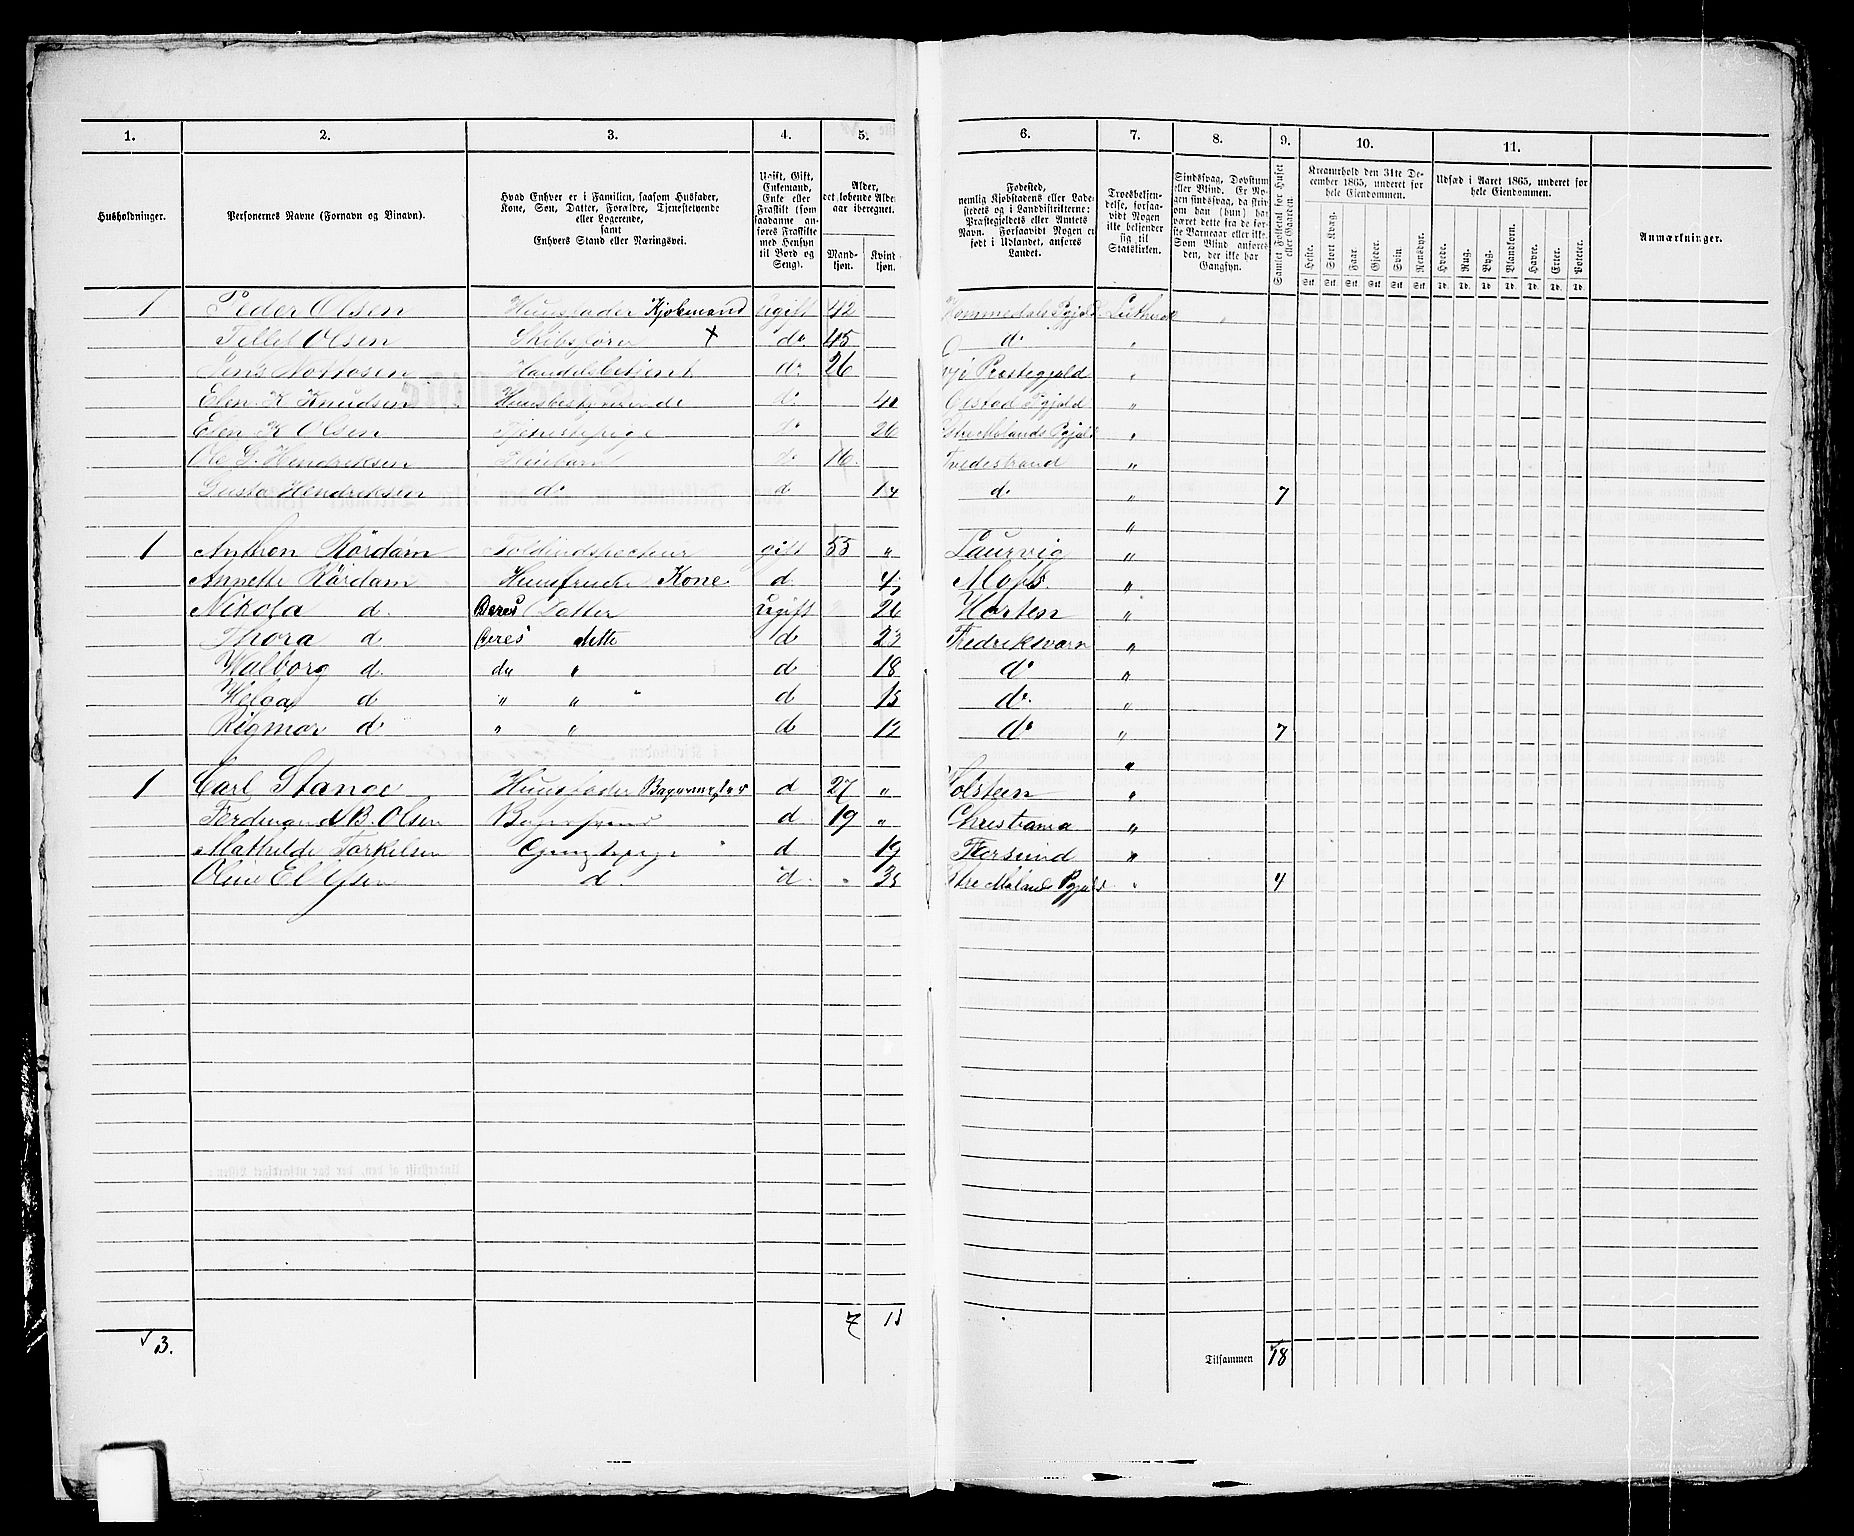 1. 2. 3. 4. 5. 6. 7. 8. 9. 10. 11.
Husholdninger.
Personernes Navne (Fornavn og Binavn).
Hvad Enhver er i Familien, saasom Husfader,
Kone, Søn, Datter, Forældre, Tjenestetyende
eller Logerende,
samt
Enhvers Stand eller Næringsvei.
Ugift, Gift,
Enkemand,
Enke eller
Fraskilt (som
saadanne an-
føres Fraskilte
med Hensyn
til Bord og
Seng).
Alder,
det løbende Alders-
aar iberegnet.
Mand-
kjøn.
Kvind-
kjøn.
Fødested,
nemlig Kjøbstadens eller Lade-
stedets og i Landdistrikterne:
Præstegjeldets eller Amtets
Navn. Forsaavidt Nogen er
født i Udlandet, anføres
Landet.
Troesbekjen-
delse, forsaa-
vidt Nogen
ikke bekjender
sig til
Statskirken.
Sindssvag, Døvstum
eller Blind. Er No-
gen sindssvag, da skri-
ves om han (hun) har
været dette fra de før-
ste Barneaar eller ikke.
Som Blind anføres
den, der ikke har
Gangsyn.
Samlet Folketal for Huset
eller Gaarden.
Kreaturhold den 31te De-
cember 1865, underet for
hele Eiendommen.
Heste. Stort Kvæg. Faar. Gjeder. Svin. Rensdyr.
Udsæd i Aaret 1865, underet for
hele Eiendommen.
Hvede. Rug. Byg. Blandkorn. Havre. Erter. Poteter.
Stk. Stk. Stk. Stk. Stk. Stk. Td. Td. Td. Td. Td. Td. Td.
Anmærkninger.
1 Peder Olsen Huusfader Kjøbmand Ugift 42 Hommedals Pgjeld Luthersk
Tellef Olsen Skibsfører × do 45 do "
Jens do 26 Præstegjeld "
Elen K Knudsen Huusbestyrerinde do 40 Pgjeld "
Elen K Olsen Tjenestepige do 26 Molands Pgjeld "
Ole G. Hendriksen do 16 Tvedestrand "
Hendriksen do d 14 do " 7
"
1 Anthon Rördam gift 55 " Laurvig "
Annette Rördam Huusfrue Kone d Moss "
Nikola d. Deres Datter Ugift 26 Horten "
Thora d Deres ditto d 23 Fredriksværn "
Walborg d do " d 18 do "
Helga d " " " d 15 do "
Rigmor do " " d 12 do " 7
"
1 Carl Stange Huusfader Bagermester d 27 " Holsteen "
Ferdinand B. Olsen d 19 " Christiania "
Mathilde Torkelsen d 19 "
d. d. " 35 Pgjeld " 4
7 11
3.
Tilsammen 18